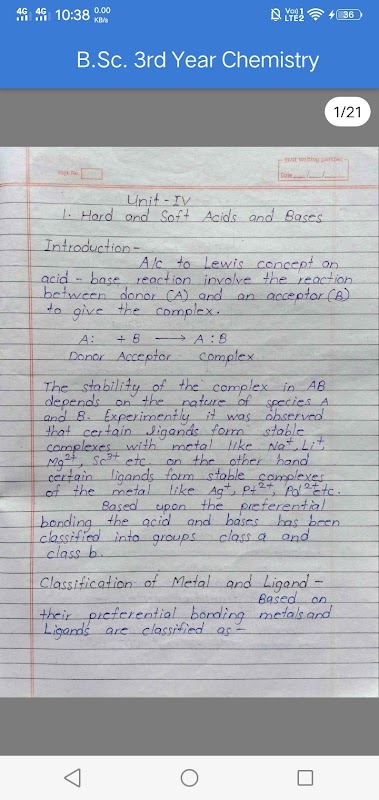 4G 4G 10:38 0.00 KB/s Vo) 1 LTE2 36
B.Sc. 3rd Year Chemistry
1/21
Page No.
Date
Unit - IV
1. Hard and Soft Acids and Bases
Introduction -
A/c to Lewis concept an
acid - base reaction involve the reaction
between donor (A) and an acceptor (B)
to give the complex.
A: + B → A : B
Donor Acceptor Complex
The stability of the complex in AB
depends on the nature of species A
and B. Experimently it was observed
that certain ligands form stable
complexes with metal like Na⁺, Li⁺,
Mg²⁺, Sc³⁺ etc on the other hand
certain ligands form stable complexes
of the metal like Ag⁺, Pt²⁺, Pd²⁺ etc.
Based upon the preferential
bonding the acid and bases has been
classified into groups class a and
class b.
Classification of Metal and Ligand -
Based on
their preferential bonding metals and
Ligands are classified as -